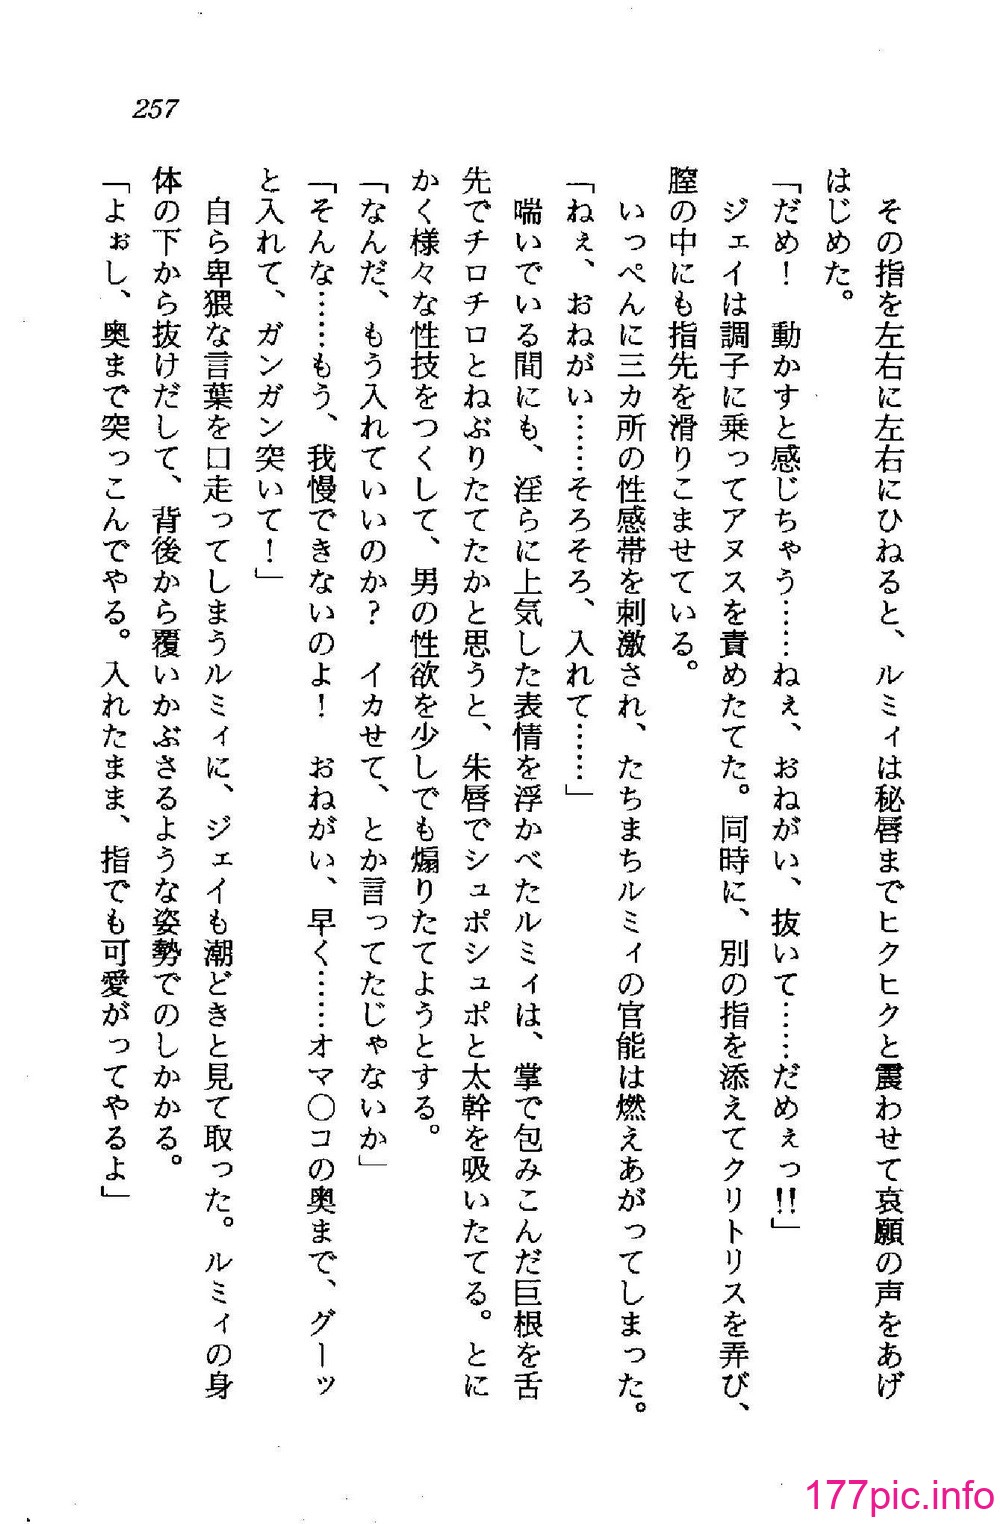 257
その指を左右に左右にひねると、ルミィは秘唇までヒクヒクと震わせて哀願の声をあげ
はじめた。
「だめ！　動かすと感じちゃう……ねぇ、おねがい、抜いて……だめぇっ!!」
ジェイは調子に乗ってアヌスを責めたてた。同時に、別の指を添えてクリトリスを弄び、
膣の中にも指先を滑りこませている。
いっぺんに三カ所の性感帯を刺激され、たちまちルミィの官能は燃えあがってしまった。
「ねぇ、おねがい……そろそろ、入れて……」
喘いでいる間にも、淫らに上気した表情を浮かべたルミィは、掌で包みこんだ巨根を舌
先でチロチロとねぶりたてたかと思うと、朱唇でシュポシュポと太幹を吸いたてる。とに
かく様々な性技をつくして、男の性欲を少しでも煽りたてようとする。
「なんだ、もう入れていいのか？　イカせて、とか言ってたじゃないか」
「そんな……もう、我慢できないのよ！　おねがい、早く……オマ〇コの奥まで、グーッ
と入れて、ガンガン突いて！」
自ら卑猥な言葉を口走ってしまうルミィに、ジェイも潮どきと見て取った。ルミィの身
体の下から抜けだして、背後から覆いかぶさるような姿勢でのしかかる。
「よぉし、奥まで突っこんでやる。入れたまま、指でも可愛がってやるよ」
177pic.info